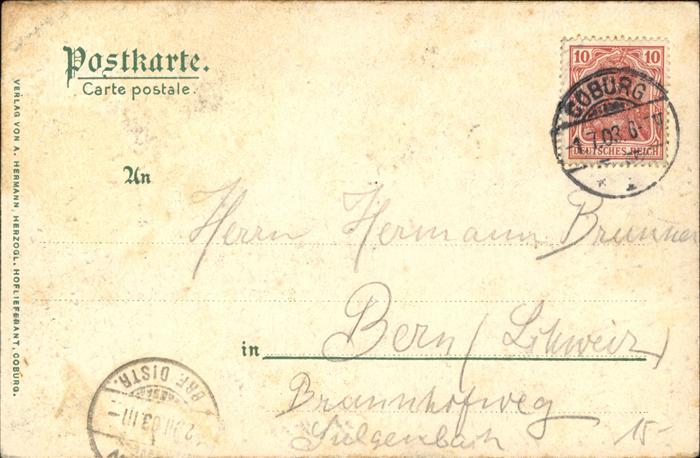 Postkarte.
Carte postale.
10 10
COBURG
1.7.03. 6
DEUTSCHES REICH
An
Herrn Hermann Brunner
in Bern (Schweiz)
Brunnhofweg
Sulgenbach
15-
BRF. DISTR.
VERLAG VON A. HERMANN, HERZOGL. HOFLIEFERANT, COBURG.